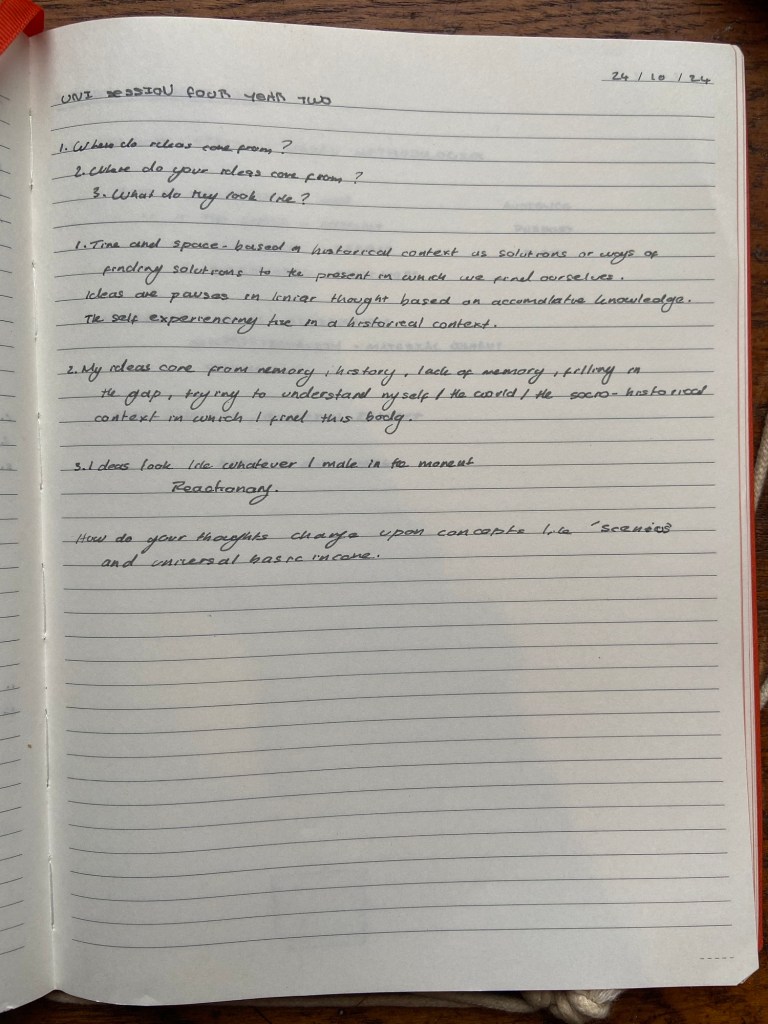 24/10/24
UNI SESSION FOUR YEAR TWO
1. Where do ideas come from?
2. Where do your ideas come from?
3. What do they look like?
1. Time and space - based a historical context us solutions or ways of
finding solutions to the present in which we find ourselves.
Ideas are pauses in liniar thought based on accumalative knowledge.
The self experiencing live in a historical context.
2. My ideas come from memory, history, lack of memory, filling in
the gap, trying to understand myself / the world / the socio-historical
context in which I find this body.
3. Ideas look like whatever I make in the moment
Reactionary.
How do your thoughts change upon concepts like
and universal basic income.